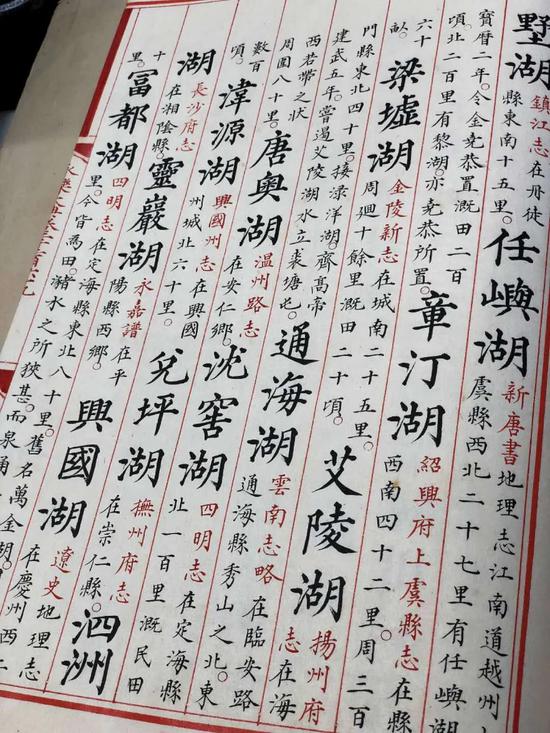 墅湖
鎮江志在丹徒
縣東南十五里。
任嶼湖
新唐書地理志江南道越州
虞縣西北二十七里有任嶼湖
寶曆二年。令金堯恭置溉田二百
頃。北二百里有黎湖。亦堯恭所置。
章汀湖
紹興府上虞縣志在縣
西南四十二里。周三百
六十
畝。
梁墟湖
金陵新志在城南二十五里。
周廻十餘里溉田二十頃。
艾陵湖
揚州府
志在海
門縣東北四十里。接淥洋湖。齊高帝
建武五年。嘗過艾陵湖水立裘塘屯
通海湖
雲南志略在臨安路
通海縣秀山之北。東
西若帶之狀
周圍八十里。
唐奧湖
温州路志
在安仁鄉。
沈窖湖
四明志在定海縣
北一百里溉民田
數百
頃。
湋源湖
興國州志在興國
州城北六十里。
兌坪湖
撫州府志
在崇仁縣。
泗洲
湖
長沙府志
在湘陰縣。
靈巖湖
永嘉譜在平
陽縣西鄉。
興國湖
遼史地理志
在慶州西二
十
里。
富都湖
四明志在定海縣東北八十里。舊名萬金湖。
里。今皆爲田。瀦水之所狹甚。而泉